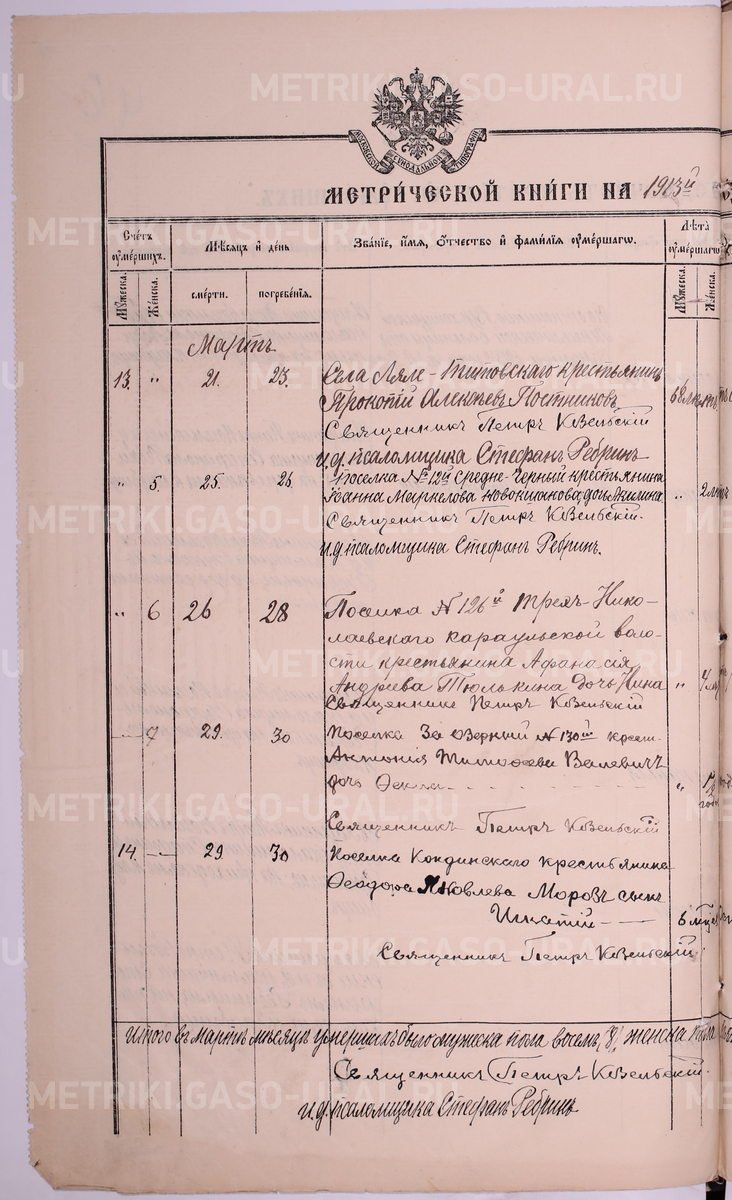 МОСКОВСКОЙ СѴНОДАЛЬНОЙ ТИПОГРАФІИ
МЕТРИ́ЧЕСКОЙ КНИ́ГИ НА 1913й
Сче́тъ оу҆ме́ршихъ.
Мѣ́сяцъ и҆ де́нь
Зва́нїе, и҆́мя, ѻ҆́тчество и҆ фами́лїя оу҆ме́ршагѡ.
Лѣ́та оу҆ме́ршагѡ
Мꙋ́жеска.
Же́нска.
сме́рти.
погребе́нїя.
Мꙋ́жеска.
Же́нска.
Мартъ
13. " 21. 23. Села Ляле-Титовскаго крестьянинъ 68 лѣтъ
Прокопій Алексѣевъ Постниковъ
Священникъ Петръ Ковельскій
И.д. псаломщика Стефанъ Ребринъ
" 5. 25. 26. поселка №12й Средне-Черный крестьянина
Іоанна Маркелова дочь Акилина " 2 лѣтъ
Священникъ Петръ Ковельскій.
И.д. псаломщика Стефанъ Ребринъ.
" 6 26 28 Поселка №126й Нико-
лаевскаго Караульской воло-
сти крестьянина Афанасія
Андреева Тюлькина дочь Нина " 4
Священникъ Петръ Ковельскій
7 29. 30 поселка За озерный №130й крест.
Антонія Тимоѳеева Валевичъ
дочь Ѳекла " 1/2 года
Священникъ Петръ Ковельскій
14. 29. 30 поселка Кондинскаго крестьянина
Ѳеодора Яковлева Морозъ сынъ
Игнатій 6
Священникъ Петръ Ковельскій
Итого въ Мартѣ мѣсяцѣ умершихъ было мужеска пола восемь (8) женска пола
Священникъ Петръ Ковельскій.
И.д. псаломщика Стефанъ Ребринъ
METRIKI.GASO-URAL.RU